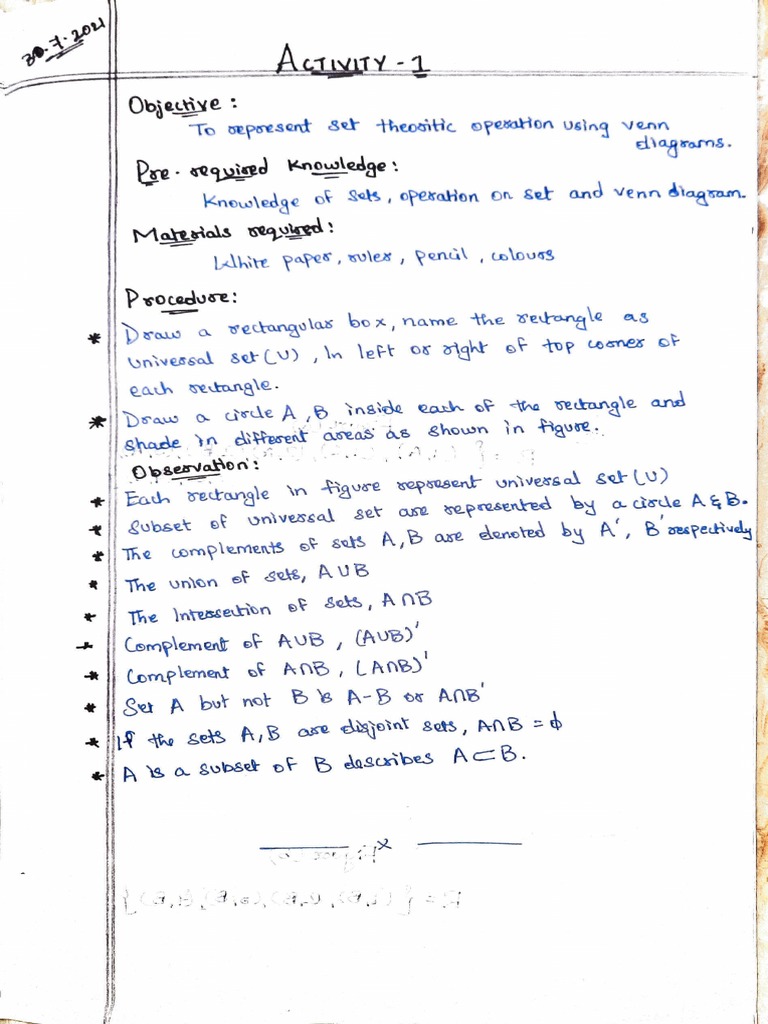 30.7.2021
ACTIVITY - 1
Objective :
To represent set theoritic operation using venn
diagrams.
Pre-required Knowledge :
Knowledge of sets, operation on set and venn diagram.
Materials required :
White paper, ruler, pencil, colours
Procedure :
* Draw a rectangular box, name the rectangle as
universal set (U), In left or right of top corner of
each rectangle.
* Draw a circle A, B inside each of the rectangle and
shade in different areas as shown in figure.
Observation :
* Each rectangle in figure represent universal set (U)
* Subset of universal set are represented by a circle A & B.
* The complements of sets A, B are denoted by A', B' respectively
* The union of sets, A∪B
* The Intersection of sets, A∩B
* Complement of A∪B, (A∪B)'
* Complement of A∩B, (A∩B)'
* Set A but not B is A-B or A∩B'
* If the sets A, B are disjoint sets, A∩B = ϕ
* A is a subset of B describes A⊂B.
x